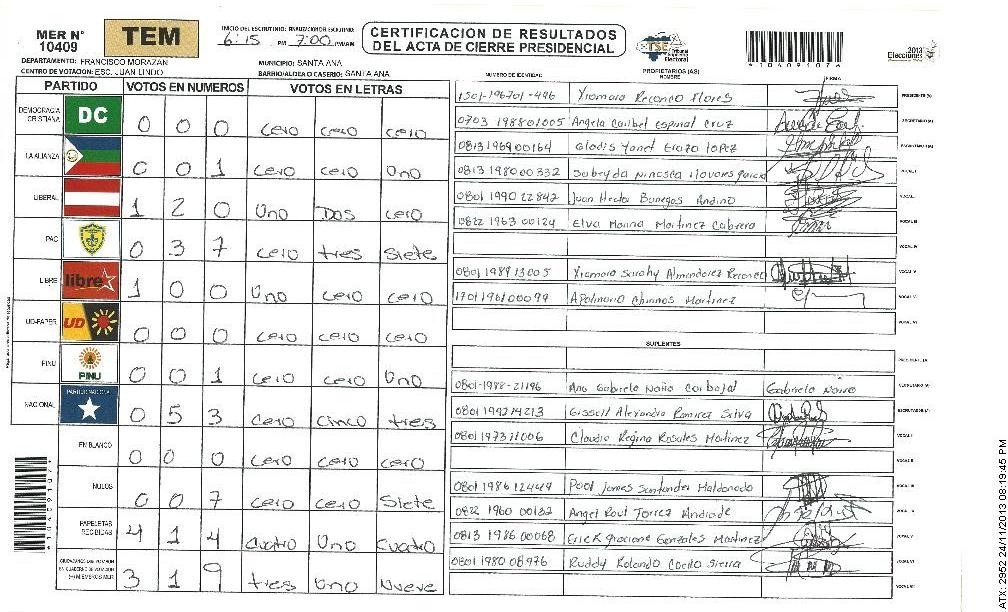 MER N° 10409
TEM
INICIO DEL ESCRUTINIO: FINALIZACION DE ESCUTINIO:
6:15 PM 7:00 PM/AM
CERTIFICACION DE RESULTADOS
DEL ACTA DE CIERRE PRESIDENCIAL
TSE Tribunal Supremo Electoral
*10409107*
2013 Elecciones
DEPARTAMENTO: FRANCISCO MORAZAN
MUNICIPIO: SANTA ANA
CENTRO DE VOTACION: ESC. JUAN LINDO
BARRIO/ALDEA O CASERIO: SANTA ANA
PARTIDO VOTOS EN NUMEROS VOTOS EN LETRAS
DEMOCRACIA CRISTIANA DC 0 0 0 cero cero cero
LA ALIANZA 0 0 1 cero cero Uno
LIBERAL 1 2 0 Uno Dos cero
PAC 0 3 7 cero tres Siete
LIBRE libre 1 0 0 Uno cero cero
UD-FAPER UD 0 0 0 cero cero cero
PINU PINU 0 0 1 cero cero Uno
NACIONAL 0 5 3 cero cinco tres
EN BLANCO 0 0 0 cero cero cero
NULOS 0 0 7 cero cero Siete
PAPELETAS RECIBIDAS 4 1 4 Cuatro Uno Cuatro
3 1 9 tres Uno Nueve
NUMERO DE IDENTIDAD PROPIETARIOS (AS) NOMBRE FIRMA
1501-196701-496 Xiomara Reconco Flores PRESIDENTE (A)
0703 198801005 Angela Caribel Espinal Cruz SECRETARIO (A)
0813 1969 00164 Glodis Yanet Erazo lopez ESCRUTADOR (A)
0813 1980 00332 VOCAL I
0801 1990 22842 Juan Hector Banegas Andino VOCAL II
0822 1963 00124 Elva Marina Martinez Cabrera VOCAL III
VOCAL IV
0801 1989 13005 Xiomara Sarahy Almendarez Reconco VOCAL V
1701 1961 00099 Apolinario Chinnos Martinez VOCAL VI
VOCAL VII
SUPLENTES
0801-1988-21196 Ana Gabriela Gabriela SECRETARIO (A)
0801 1992 14213 Gissell Alexandra Ramirez Silva ESCRUTADOR (A)
0801 1973 11006 Claudia Regina Rosales Martinez VOCAL I
VOCAL II
0801 1986 12449 Pool James Santander Maldonado VOCAL III
0822 1960 00132 Angel Raul Torrez Andrade
0813 1986 00068 Erick Gonzales Martinez VOCAL V
0801 1980 08976 Ruddy Rolando Coello Sierra VOCAL VI
VOCAL VII
ATX: 2952 24/11/2013 08:19:45 PM